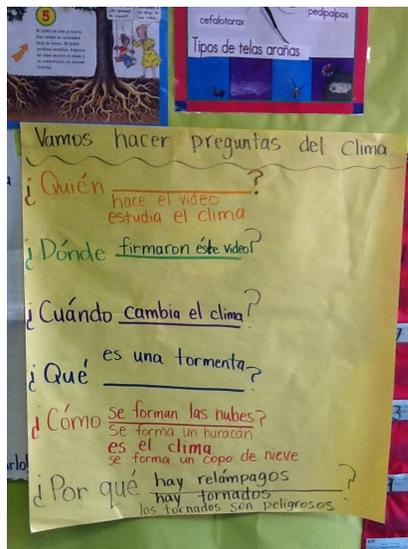 5
cefalotorax
pedipalpos
Tipos de telas arañas
Vamos hacer preguntas del Clima
¿Quién ____________?
hace el video
estudia el clima
¿Dónde firmaron éste video?
¿Cuándo cambia el clima?
es una tormenta
¿Qué ____________?
¿Cómo se forman las nubes?
se forma un huracán
es el clima
se forma un copo de nieve
¿Por qué hay relámpagos ?
hay tornados
los tornados son peligrosos